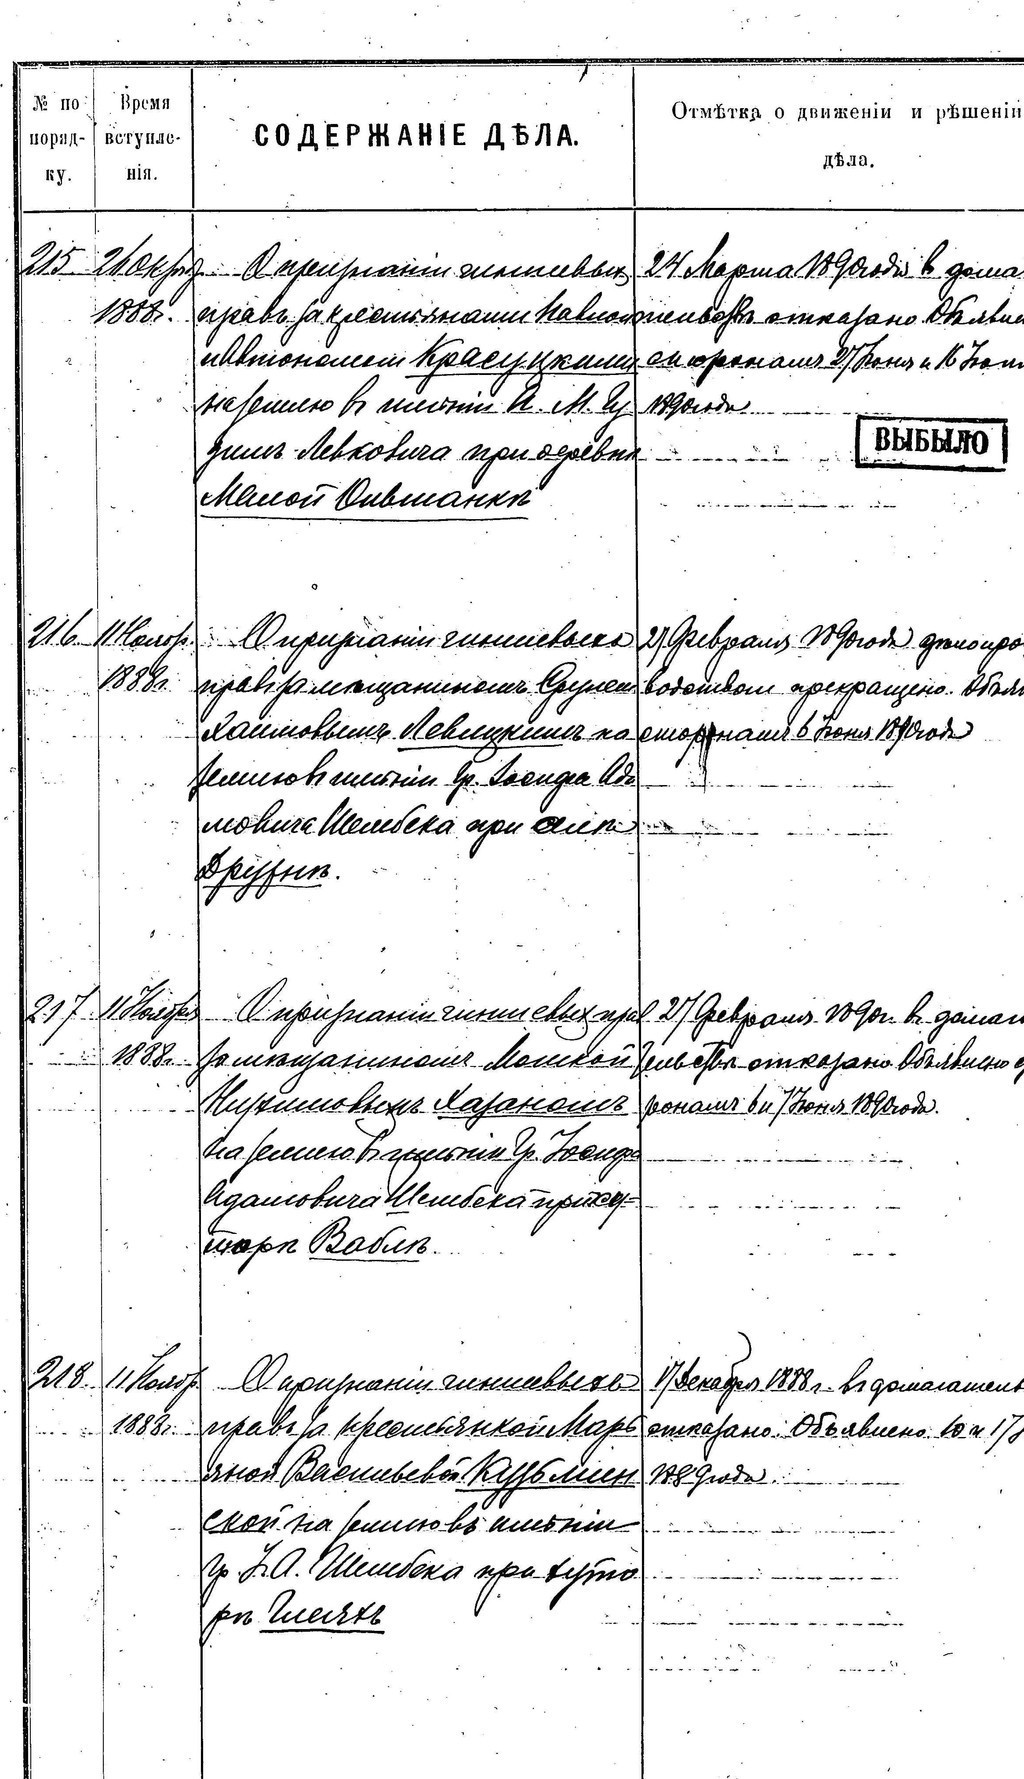 № по
поряд-
ку.
Время
вступле-
нія.
СОДЕРЖАНІЕ ДѢЛА.
Отмѣтка о движеніи и рѣшеніи
дѣла.
215
21 Октяб
1888 г.
О признаніи чиншевыхъ
правъ за крестьянами
и Автономомъ Красуцкими
на землю въ имѣніи
Левковича при деревнѣ
Малой
24 Марта 1890 года въ дома
отказано. Объявле
сторонамъ 27 Іюня и 16
1890 года
ВЫБЫЛО
216
11 Нояб.
1888 г.
О признаніи чиншеваго
права за мѣщаниномъ
Хаимовымъ Левицкимъ на
землю въ имѣніи Гр. Іосифа Ада
мовича Шембека при селѣ
27 Февраля 1890 года дѣлопро
водствомъ прекращено. Объяв
сторонамъ 6 Іюня 1890 года
217
11 Ноября
1888 г.
О признаніи чиншевыхъ прав
за мѣщаниномъ Мошкой
Хазаномъ
на землю въ имѣніи Гр. Іосифа
Адамовича Шембека при ху-
торѣ Вабля.
27 Февраля 1890 г. въ домаг
тельствѣ отказано. Объявлено с
ронамъ 6 и 7 Іюня 1890 года.
218
11 Нояб.
1888 г.
О признаніи чиншевыхъ
правъ за крестьянкой Марь
яной Васильевой Кузьмин
ской на землю въ имѣніи
гр. І. А. Шембека при хуто
рѣ
17 Декабря 1888 г. въ домагатель
отказано. Объявлено 10 и 17
1889 года.